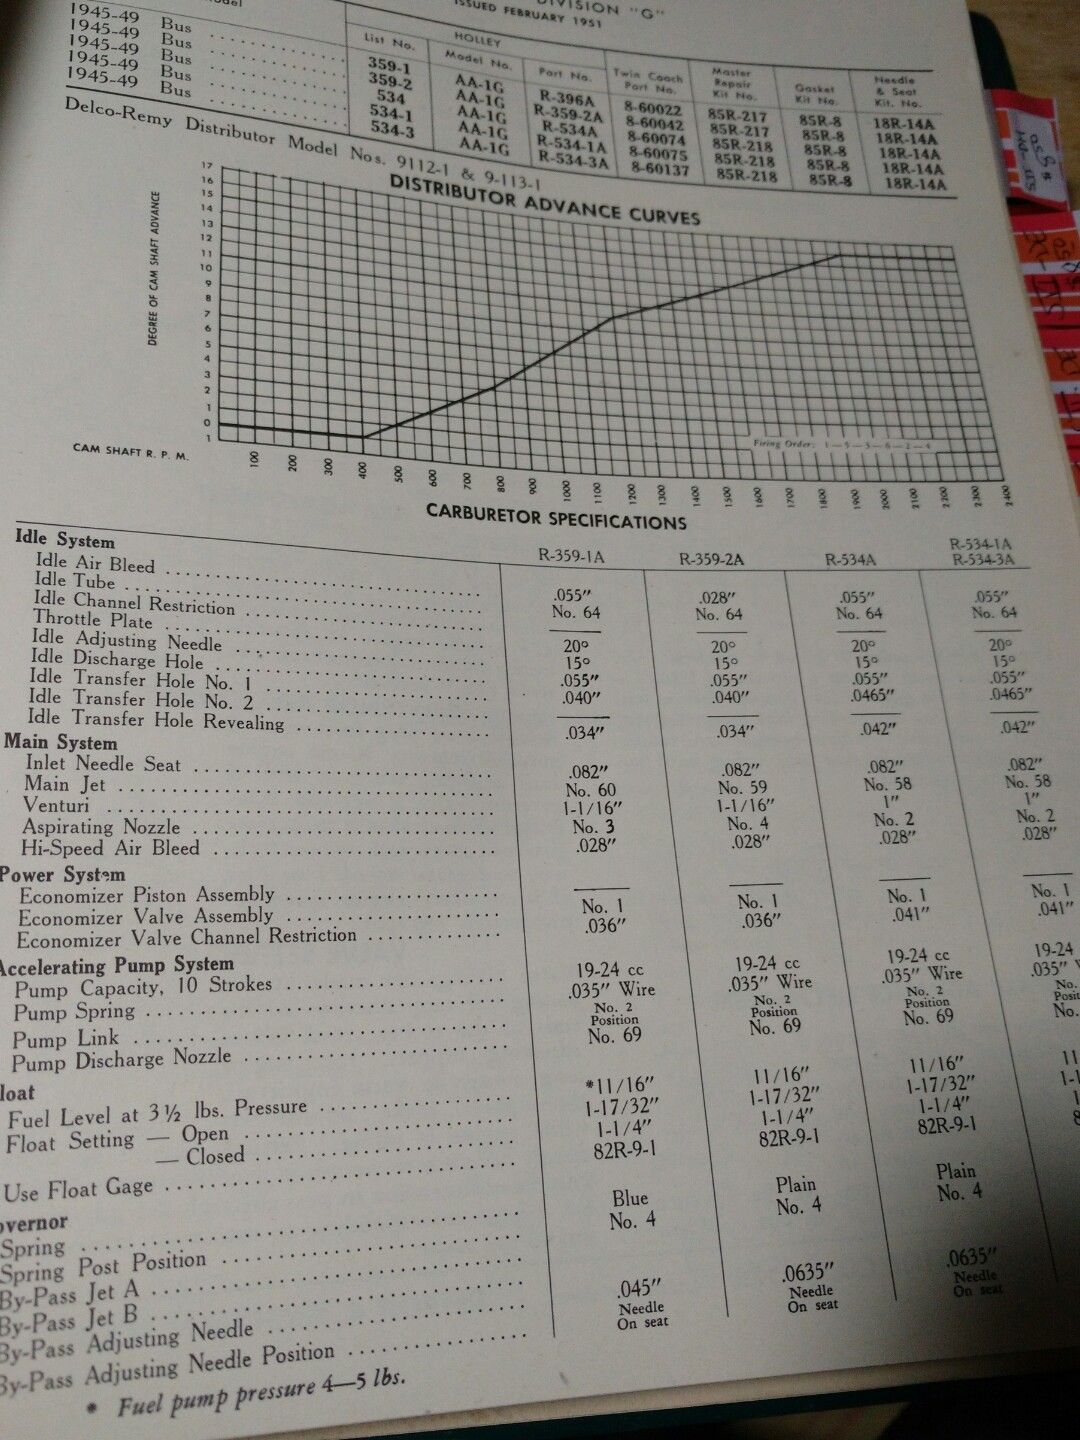 DIVISION "G"
ISSUED FEBRUARY 1951
HOLLEY
List No. Model No. Part No. Twin Coach Part No. Master Repair Kit No. Gasket Kit No. Needle & Seat Kit. No.
1945-49 Bus 359-1 AA-1G R-396A 8-60022 85R-217 85R-8 18R-14A
1945-49 Bus 359-2 AA-1G R-359-2A 8-60042 85R-217 85R-8 18R-14A
1945-49 Bus 534 AA-1G R-534A 8-60074 85R-218 85R-8 18R-14A
1945-49 Bus 534-1 AA-1G R-534-1A 8-60075 85R-218 85R-8 18R-14A
1945-49 Bus 534-3 AA-1G R-534-3A 8-60137 85R-218 85R-8 18R-14A
Delco-Remy Distributor Model Nos. 9112-1 & 9-113-1
DISTRIBUTOR ADVANCE CURVES
DEGREE OF CAM SHAFT ADVANCE
17
16
15
14
13
12
11
10
9
8
7
6
5
4
3
2
1
0
1
Firing Order:
CAM SHAFT R. P. M. 100 200 300 400 500 600 700 800 900 1000 1100 1200 1300 1400 1500 1600 1700 1800 1900 2000 2100 2200 2300 2400
CARBURETOR SPECIFICATIONS
R-359-1A R-359-2A R-534A R-534-1A R-534-3A
Idle System
Idle Air Bleed .055" .028" .055" .055"
Idle Tube No. 64 No. 64 No. 64 No. 64
Idle Channel Restriction
Throttle Plate 20° 20° 20° 20°
Idle Adjusting Needle 15° 15° 15° 15°
Idle Discharge Hole .055" .055" .055" .055"
Idle Transfer Hole No. 1 .040" .040" .0465" .0465"
Idle Transfer Hole No. 2
Idle Transfer Hole Revealing .034" .034" .042" .042"
Main System
Inlet Needle Seat .082" .082" .082" .082"
Main Jet No. 60 No. 59 No. 58 No. 58
Venturi 1-1/16" 1-1/16" 1" 1"
Aspirating Nozzle No. 3 No. 4 No. 2 No. 2
Hi-Speed Air Bleed .028" .028" .028" .028"
Power System
Economizer Piston Assembly
Economizer Valve Assembly No. 1 No. 1 No. 1 No. 1
Economizer Valve Channel Restriction .036" .036" .041" .041"
Accelerating Pump System
Pump Capacity, 10 Strokes 19-24 cc 19-24 cc 19-24 cc 19-24
Pump Spring .035" Wire .035" Wire .035" Wire .035"
Pump Link No. 2 Position No. 2 Position No. 2 Position No.
Pump Discharge Nozzle No. 69 No. 69 No. 69 No.
loat
Fuel Level at 3½ lbs. Pressure *11/16" 11/16" 11/16" 11
Float Setting — Open 1-17/32" 1-17/32" 1-17/32"
— Closed 1-1/4" 1-1/4" 1-1/4"
Use Float Gage 82R-9-1 82R-9-1 82R-9-1
overnor
Spring Blue Plain Plain
Spring Post Position No. 4 No. 4 No. 4
By-Pass Jet A
By-Pass Jet B .045" .0635" .0635"
By-Pass Adjusting Needle Needle Needle Needle
By-Pass Adjusting Needle Position On seat On seat On seat
* Fuel pump pressure 4—5 lbs.